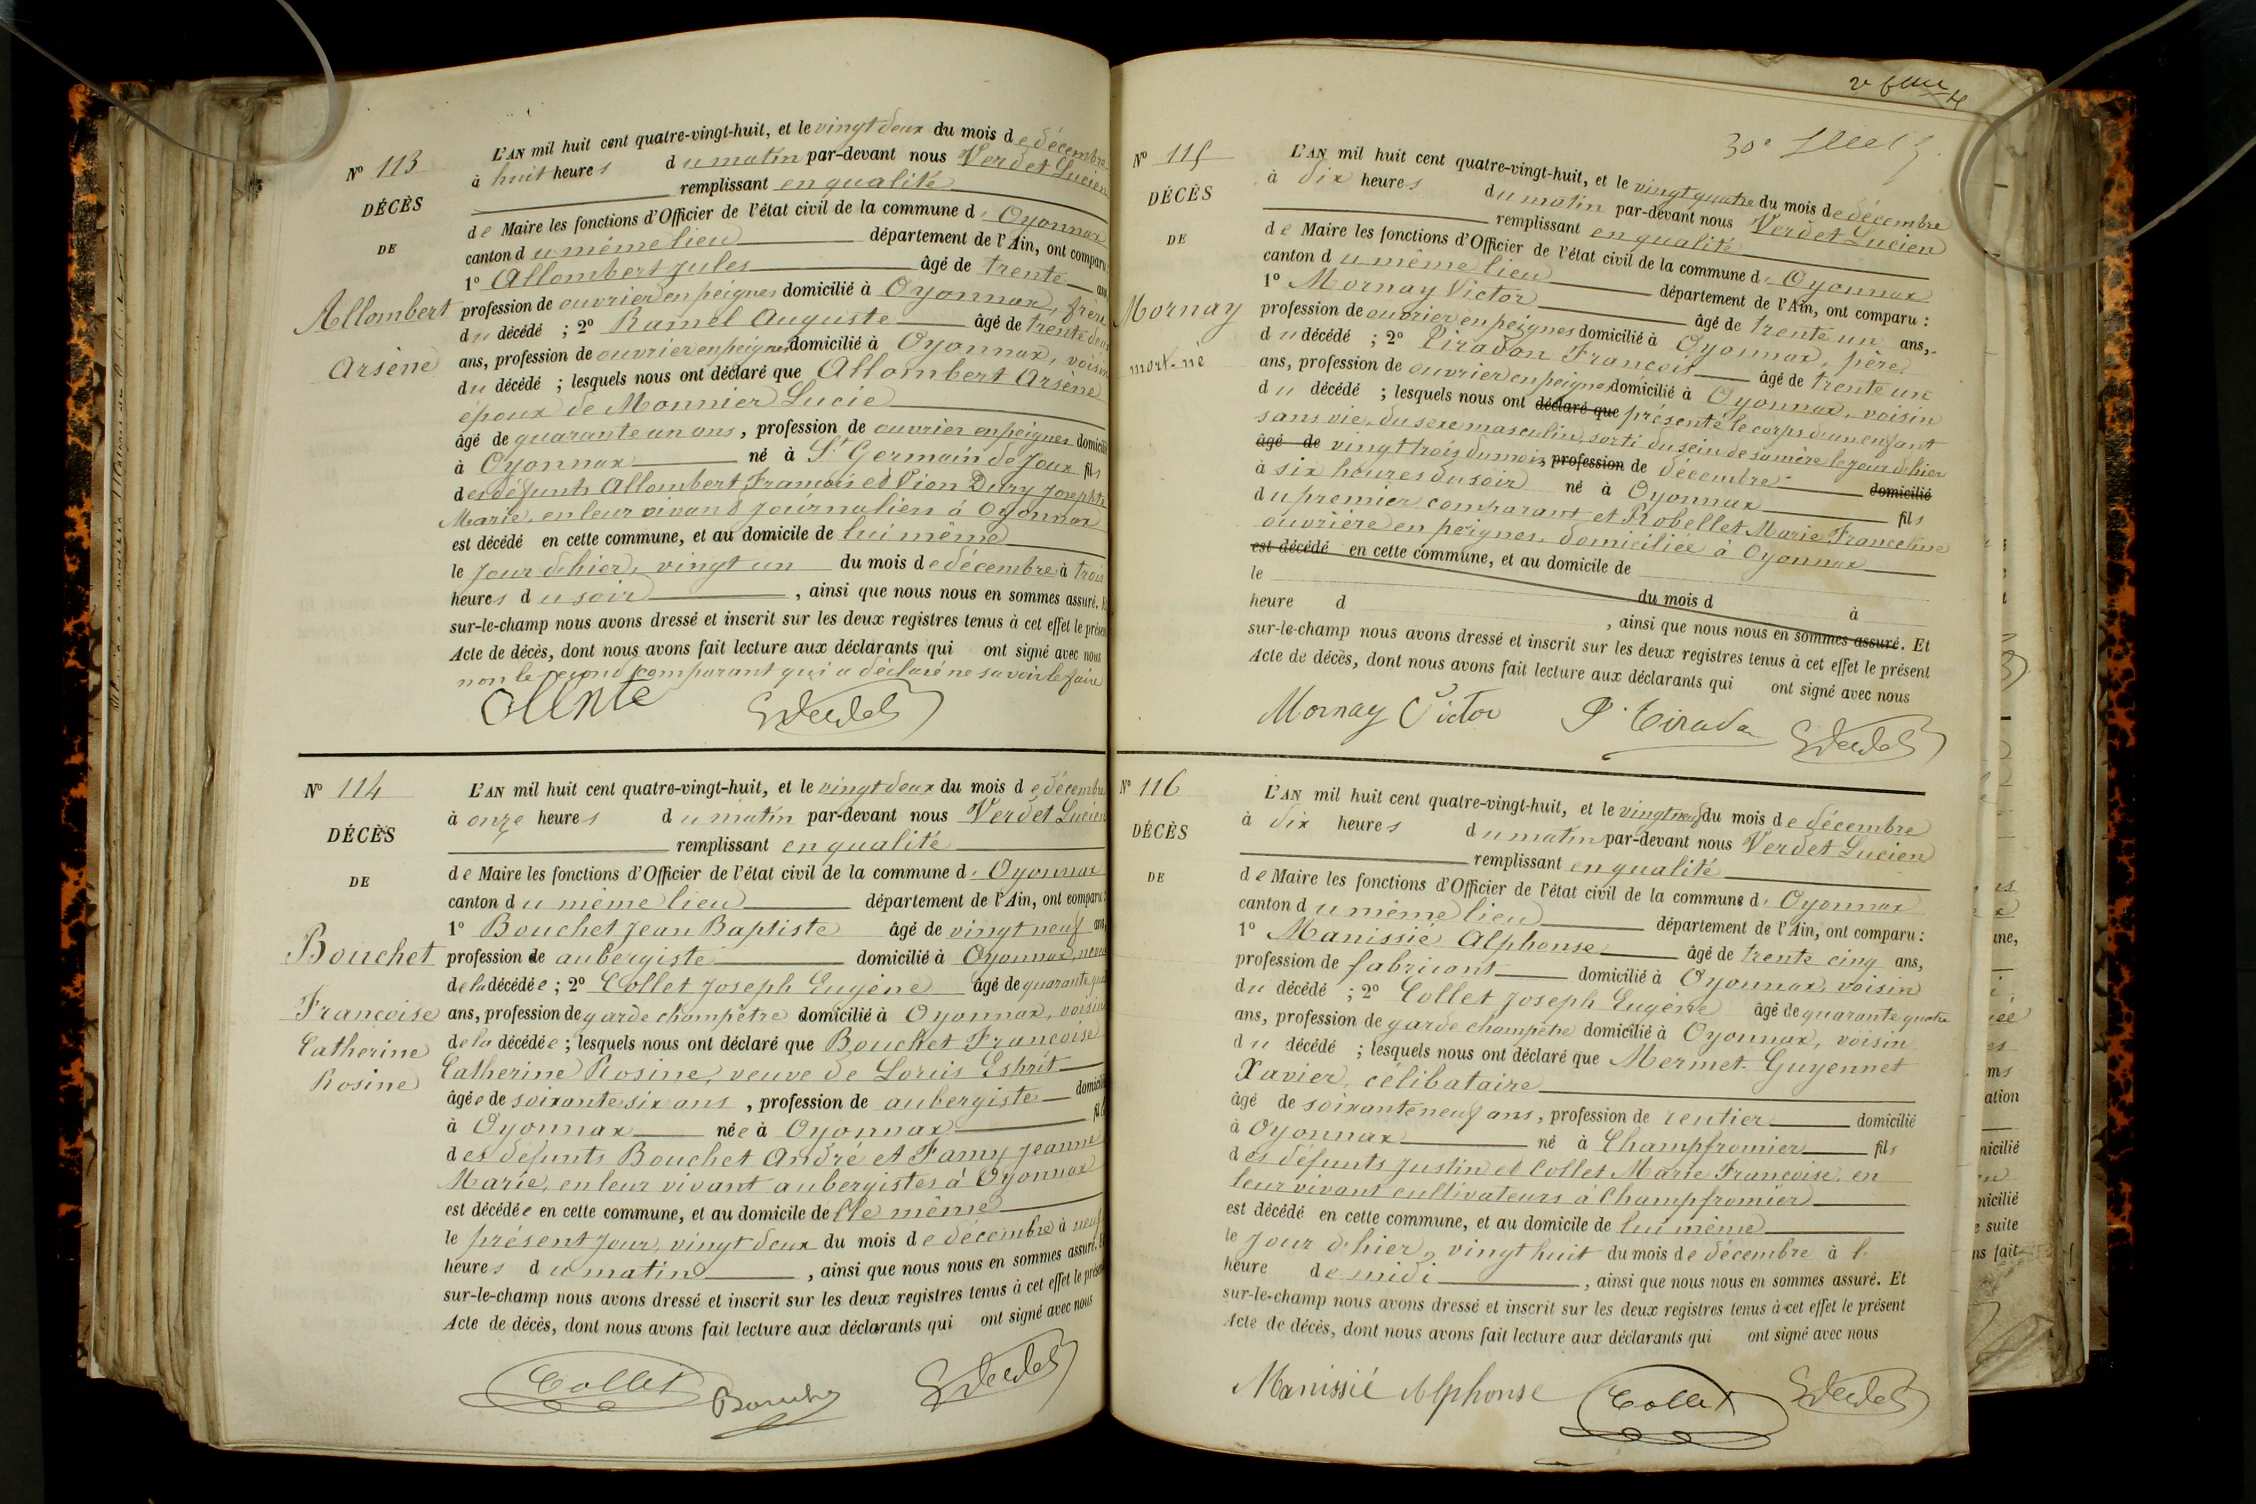 N° 113
DÉCÈS
DE
Allombert
Arsène
L'AN mil huit cent quatre-vingt-huit, et le vingt deux du mois de décembre
à huit heures du matin par-devant nous Verdet Lucien
remplissant en qualité
de Maire les fonctions d'Officier de l'état civil de la commune d'Oyonnax
canton du même lieu département de l'Ain, ont comparu :
1° Allombert Jules âgé de trente ans,
profession de ouvrier en peignes domicilié à Oyonnax, frère
du décédé ; 2° Ramel Auguste âgé de trente deux
ans, profession de ouvrier en peignes domicilié à Oyonnax, voisin
du décédé ; lesquels nous ont déclaré que Allombert Arsène
époux de Monnier Lucie
âgé de quarante un ans, profession de ouvrier en peignes domicilié
à Oyonnax né à St Germain de Joux fils
des défunts Allombert François et Pion Dury Josephte
Marie, en leur vivant journaliers à Oyonnax
est décédé en cette commune, et au domicile de lui même
le jour d'hier, vingt un du mois de décembre à trois
heures du soir, ainsi que nous nous en sommes assuré. Et
sur-le-champ nous avons dressé et inscrit sur les deux registres tenus à cet effet le présent
Acte de décès, dont nous avons fait lecture aux déclarants qui ont signé avec nous
non le second comparant qui a déclaré ne savoir le faire
N° 114
DÉCÈS
DE
Bouchet
Françoise
Catherine
Rosine
L'AN mil huit cent quatre-vingt-huit, et le vingt deux du mois de décembre
à onze heures du matin par-devant nous Verdet Lucien
remplissant en qualité
de Maire les fonctions d'Officier de l'état civil de la commune d'Oyonnax
canton du même lieu département de l'Ain, ont comparu :
1° Bouchet Jean Baptiste âgé de vingt neuf ans,
profession de aubergiste domicilié à Oyonnax, neveu
de la décédée ; 2° Collet Joseph Eugène âgé de quarante quatre
ans, profession de garde champêtre domicilié à Oyonnax, voisin
de la décédée ; lesquels nous ont déclaré que Bouchet Françoise
Catherine Rosine, veuve de Loruis Esprit
âgée de soixante six ans, profession de aubergiste domicilié
à Oyonnax née à Oyonnax fille
des défunts Bouchet André et Famy Jeanne
Marie, en leur vivant aubergistes à Oyonnax
est décédée en cette commune, et au domicile de Elle même
le présent jour, vingt deux du mois de décembre à neuf
heures du matin, ainsi que nous nous en sommes assuré. Et
sur-le-champ nous avons dressé et inscrit sur les deux registres tenus à cet effet le présent
Acte de décès, dont nous avons fait lecture aux déclarants qui ont signé avec nous
Collet Bouchet
N° 115
DÉCÈS
DE
Mornay
mort-né
L'AN mil huit cent quatre-vingt-huit, et le vingt quatre du mois de décembre
à dix heures du matin par-devant nous Verdet Lucien
remplissant en qualité
de Maire les fonctions d'Officier de l'état civil de la commune d'Oyonnax
canton du même lieu département de l'Ain, ont comparu :
1° Mornay Victor âgé de trente un ans,
profession de ouvrier en peignes domicilié à Oyonnax, père
du décédé ; 2° Piradon François âgé de trente un
ans, profession de ouvrier en peignes domicilié à Oyonnax, voisin
du décédé ; lesquels nous ont déclaré que présenté le corps d'un enfant
sans vie, du sexe masculin, sorti du sein de sa mère le jour d'hier
âgé de vingt trois du mois, profession de décembre domicilié
à six heures du soir né à Oyonnax fils
du premier comparant et Robellet Marie Franceline
ouvrière en peignes, domiciliée à Oyonnax
est décédé en cette commune, et au domicile de
le du mois d à
heure d , ainsi que nous nous en sommes assuré. Et
sur-le-champ nous avons dressé et inscrit sur les deux registres tenus à cet effet le présent
Acte de décès, dont nous avons fait lecture aux déclarants qui ont signé avec nous
Mornay Victor
N° 116
DÉCÈS
DE
L'AN mil huit cent quatre-vingt-huit, et le vingt neuf du mois de décembre
à dix heures du matin par-devant nous Verdet Lucien
remplissant en qualité
de Maire les fonctions d'Officier de l'état civil de la commune d'Oyonnax
canton du même lieu département de l'Ain, ont comparu :
1° Manissié Alphonse âgé de trente cinq ans,
profession de fabricant domicilié à Oyonnax, voisin
du décédé ; 2° Collet Joseph Eugène âgé de quarante quatre
ans, profession de garde champêtre domicilié à Oyonnax, voisin
du décédé ; lesquels nous ont déclaré que Mermet-Guyennet
Xavier, célibataire
âgé de soixante neuf ans, profession de rentier domicilié
à Oyonnax né à Champfromier fils
des défunts Justin et Collet Marie Françoise, en
leur vivant cultivateurs à Champfromier
est décédé en cette commune, et au domicile de lui même
le jour d'hier, vingt huit du mois de décembre à l'
heure de midi, ainsi que nous nous en sommes assuré. Et
sur-le-champ nous avons dressé et inscrit sur les deux registres tenus à cet effet le présent
Acte de décès, dont nous avons fait lecture aux déclarants qui ont signé avec nous
Manissié Alphonse Collet